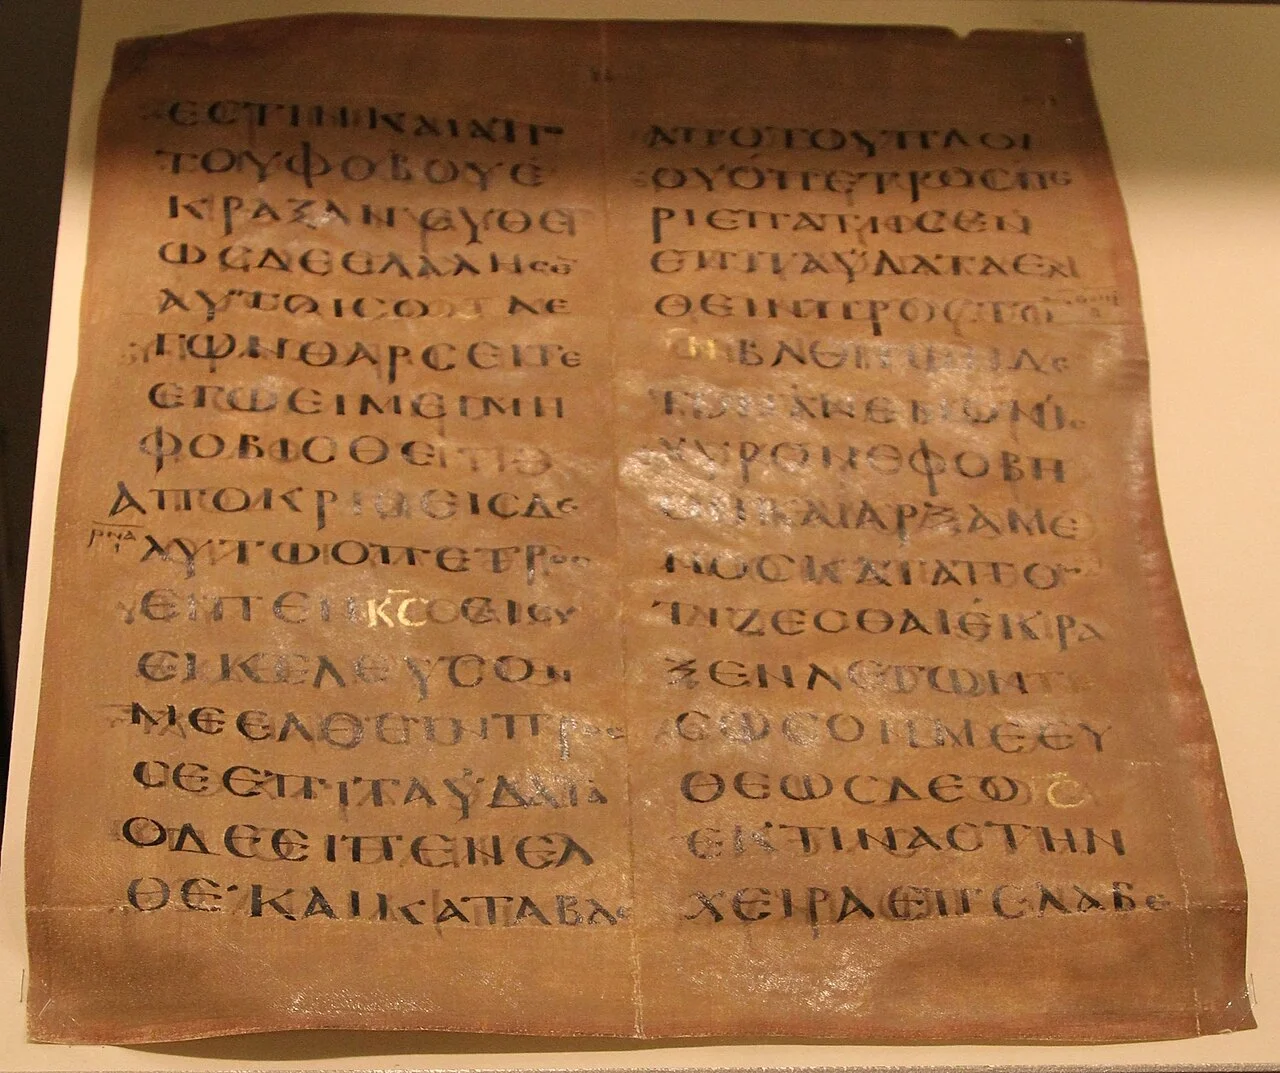 ΕCΤΙΝΚΑΙΑΠ
ΤΟΥΦΟΒΟΥΕ
ΚΡΑΞΑΝΕΥΘΕ
ΩCΔΕΕΛΑΛΗCΕ
ΑΥΤΟΙCΟ ΛΕ
ΓΩΝΘΑΡCΕΙΤΕ
ΕΓΩΕΙΜΕΙΜΗ
ΦΟΒΙCΘΕ
ΑΠΟΚΡΙΘΕΙCΔΕ
ΡΝΑ
Ι
ΑΥΤΩΟΠΕΤΡΟC
ΕΙΠΕΝΚ̅C̅ΕΙCΥ
ΕΙΚΕΛΕΥCΟΝ
ΜΕΕΛΘΕΙΝΠΡΟC
CΕΕΠΙΤΑΫΔΑΤΑ
ΟΔΕΕΙΠΕΝΕΛ
ΘΕ·ΚΑΙΚΑΤΑΒΑC
ΑΠΟΤΟΥΠΛΟΙ
ΟΥΟΠΕΤΡΟCΠΕ
ΡΙΕΠΑΤΗCΕΝ
ΕΠΙΤΑΫΔΑΤΑΕΛ
ΘΕΙΝΠΡΟCΤΟ
ΒΛΕΠΩΝΔΕ
ΤΟΝΑΝΕΜΟΝΙ
CΧΥΡΟΝΕΦΟΒΗ
ΘΗΚΑΙΑΡΞΑΜΕ
ΝΟCΚΑΤΑΠΟ
ΤΙΖΕCΘΑΙΕΚΡΑ
ΞΕΝΛΕΓΩΝ
CΩCΟΝΜΕΕΥ
ΘΕΩCΔΕΟ
ΕΚΤΙΝΑCΤΗΝ
ΧΕΙΡΑΕΠΕΛΑΒΕ